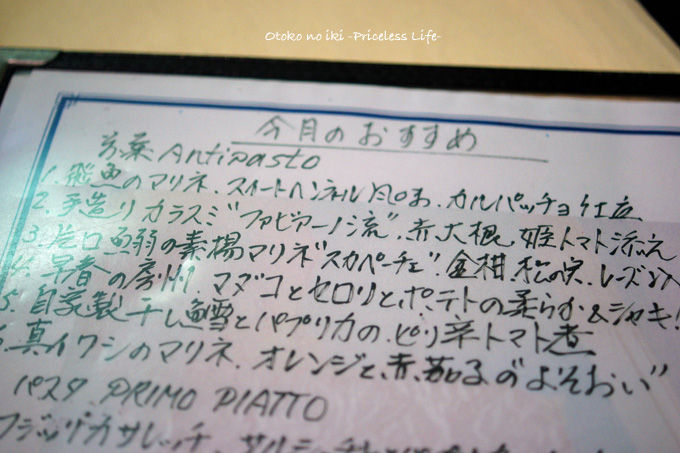 Otoko no iki -Priceless Life-
今月のおすすめ
前菜 Antipasto
1. 飛魚のマリネ、スイートヘンネル風味、カルパッチョ仕立
2. 手造りカラスミ"ファビアーノ流"、赤大根、姫トマト添え
3. 片口鰯の素揚マリネ"スカペーチェ"金柑、松の実、レーズン入
4. 早春の房州、マダコとセロリとポテトの柔らか&シャキ!
5. 自家製干し鱈とパプリカの、ピリ辛トマト煮
6. 真イワシのマリネ、オレンジと、赤茄子の"よそおい"
パスタ PRIMO PIATTO
フジッリカサレッチ、